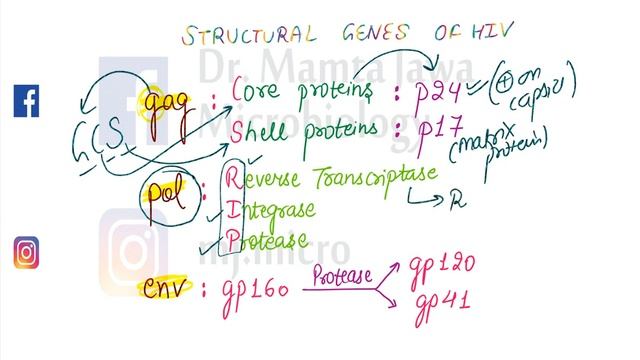 STRUCTURAL GENES OF HIV
Dr. Mamta Jawa
Microbiology
gag : Core proteins : p24 (+ on capsid)
GCS Shell proteins : p17 (matrix protein)
pol : Reverse Transcriptase
R
Integrase
Protease
mj.micro
env : gp160 Protease gp120
gp41